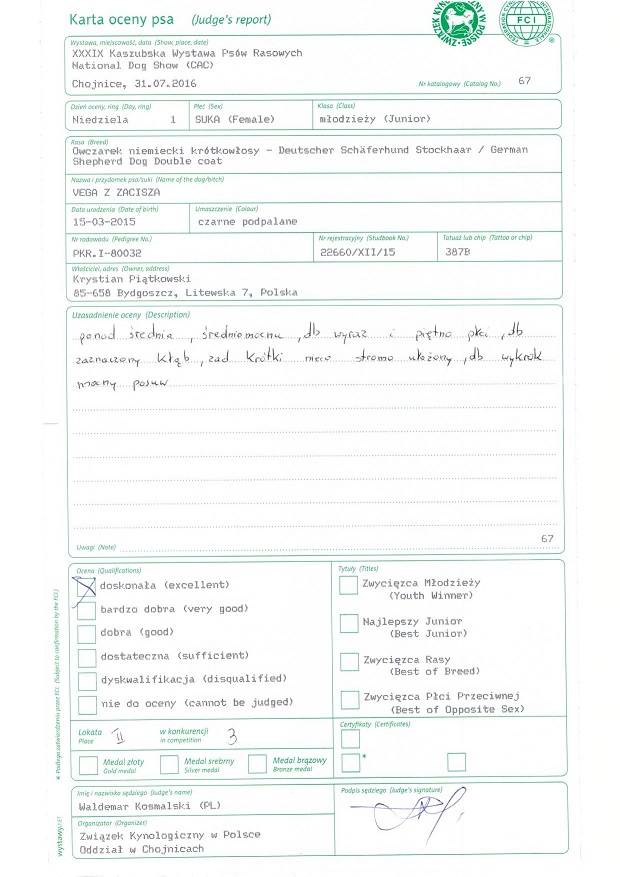 Karta oceny psa (Judge's report)
ZWIĄZEK KYNOLOGICZNY W POLSCE
FCI
Wystawa, miejscowość, data (Show, place, date)
XXXIX Kaszubska Wystawa Psów Rasowych
National Dog Show (CAC)
Chojnice, 31.07.2016
Nr katalogowy (Catalog No.) 67
Dzień oceny, ring (Day, ring) Płeć (Sex) Klasa (Class)
Niedziela 1 SUKA (Female) młodzieży (Junior)
Rasa (Breed)
Owczarek niemiecki krótkowłosy - Deutscher Schäferhund Stockhaar / German
Shepherd Dog Double coat
Nazwa i przydomek psa/suki (Name of the dog/bitch)
VEGA Z ZACISZA
Data urodzenia (Date of birth) Umaszczenie (Colour)
15-03-2015 czarne podpalane
Nr rodowodu (Pedigree No.) Nr rejestracyjny (Studbook No.) Tatuaż lub chip (Tattoo or chip)
PKR.I-80032 22660/XII/15 387B
Właściciel, adres (Owner, address)
Krystian Piątkowski
85-658 Bydgoszcz, Litewska 7, Polska
Uzasadnienie oceny (Description)
ponad średnia, średniomocna, db wyraz i piętno płci, db
zaznaczony kłąb, zad krótki nieco stromo ułożony, db wykrok
mocny posuw
67
Uwagi (Note)
Ocena (Qualifications) Tytuły (Titles)
doskonała (excellent)
bardzo dobra (very good)
dobra (good)
dostateczna (sufficient)
dyskwalifikacja (disqualified)
nie do oceny (cannot be judged)
Zwycięzca Młodzieży
(Youth Winner)
Najlepszy Junior
(Best Junior)
Zwycięzca Rasy
(Best of Breed)
Zwycięzca Płci Przeciwnej
(Best of Opposite Sex)
Lokata II w konkurencji 3
Place in competition
Certyfikaty (Certificates)
*
Medal złoty Medal srebrny Medal brązowy
Gold medal Silver medal Bronze medal
* Podlega zatwierdzeniu przez FCI (Subject to confirmation by the FCI)
Imię i nazwisko sędziego (Judge's name) Podpis sędziego (Judge's signature)
Waldemar Kosmalski (PL)
Organizator (Organizer)
Związek Kynologiczny w Polsce
Oddział w Chojnicach